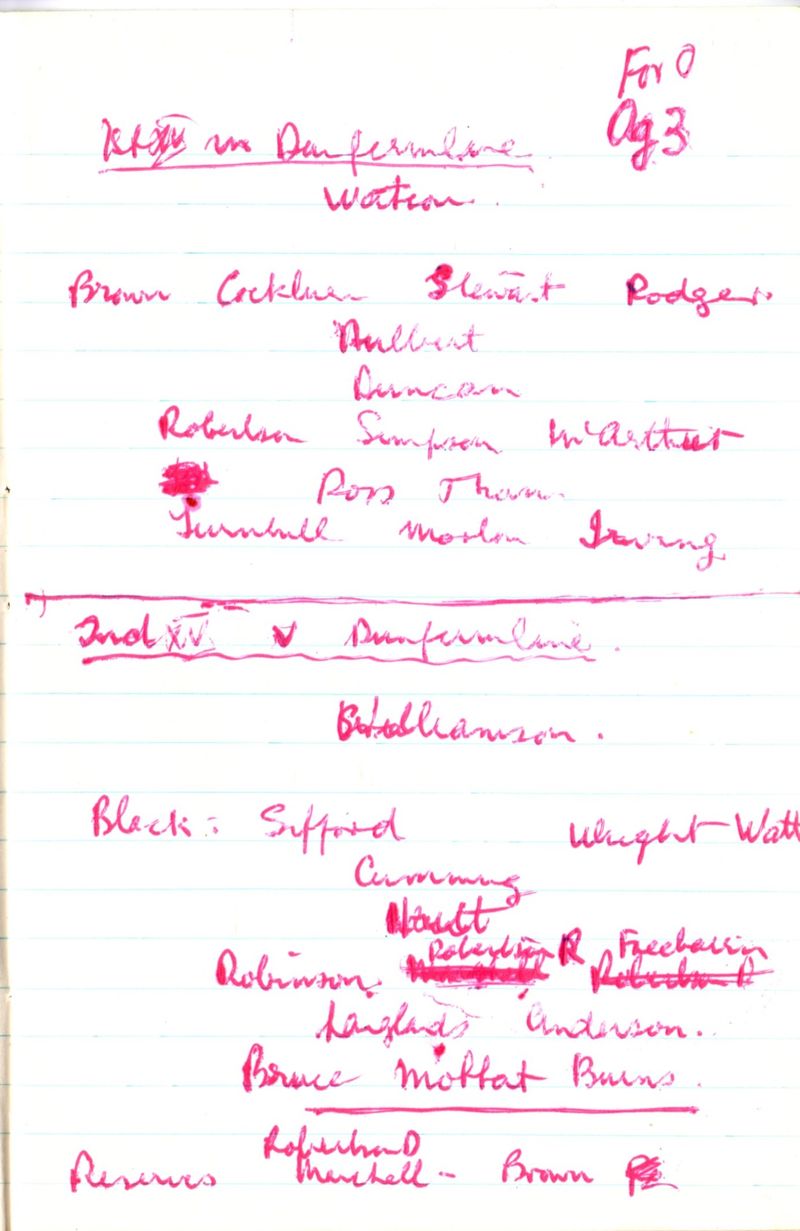 For 0
Ag 3
1st XV v Dunfermline
Watson.
Brown Cochlan Stewart Rodger.
Hulbert
Duncan
Robertson Simpson McArthur
Ross Thom.
Turnbull Morton Irving
2nd XV v Dunfermline.
Williamson.
Black: Sifford Wright Watt
Cumming
Robertson R
Robinson.
Langlads Anderson.
Bruce Moffat Burns.
Robertson D
Reserves Marshall - Brown